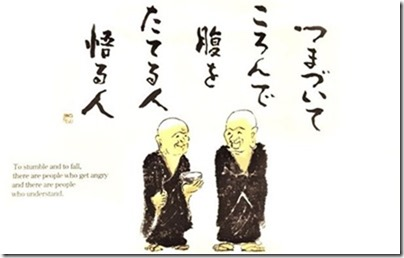 つまづいて
ころんで
腹を
たてる人
悟る人
To stumble and to fall,
there are people who get angry
and there are people
who understand.